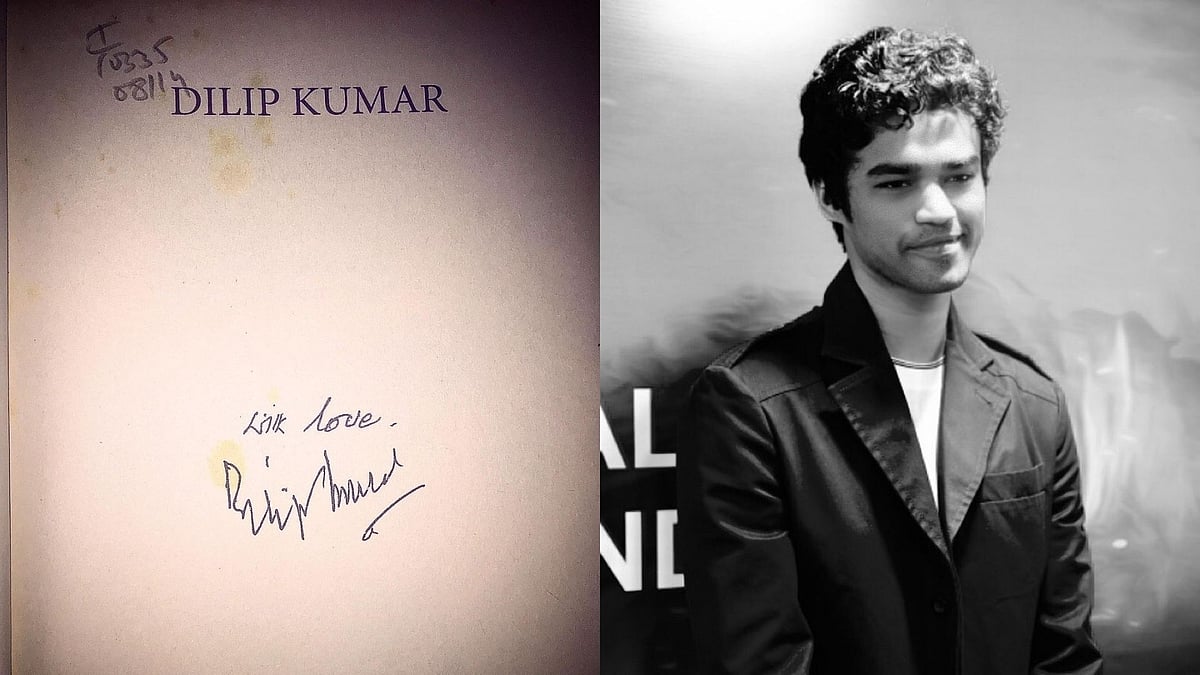 I
10335
08/14
DILIP KUMAR
with love.
Dilip Kumar
AL
ND